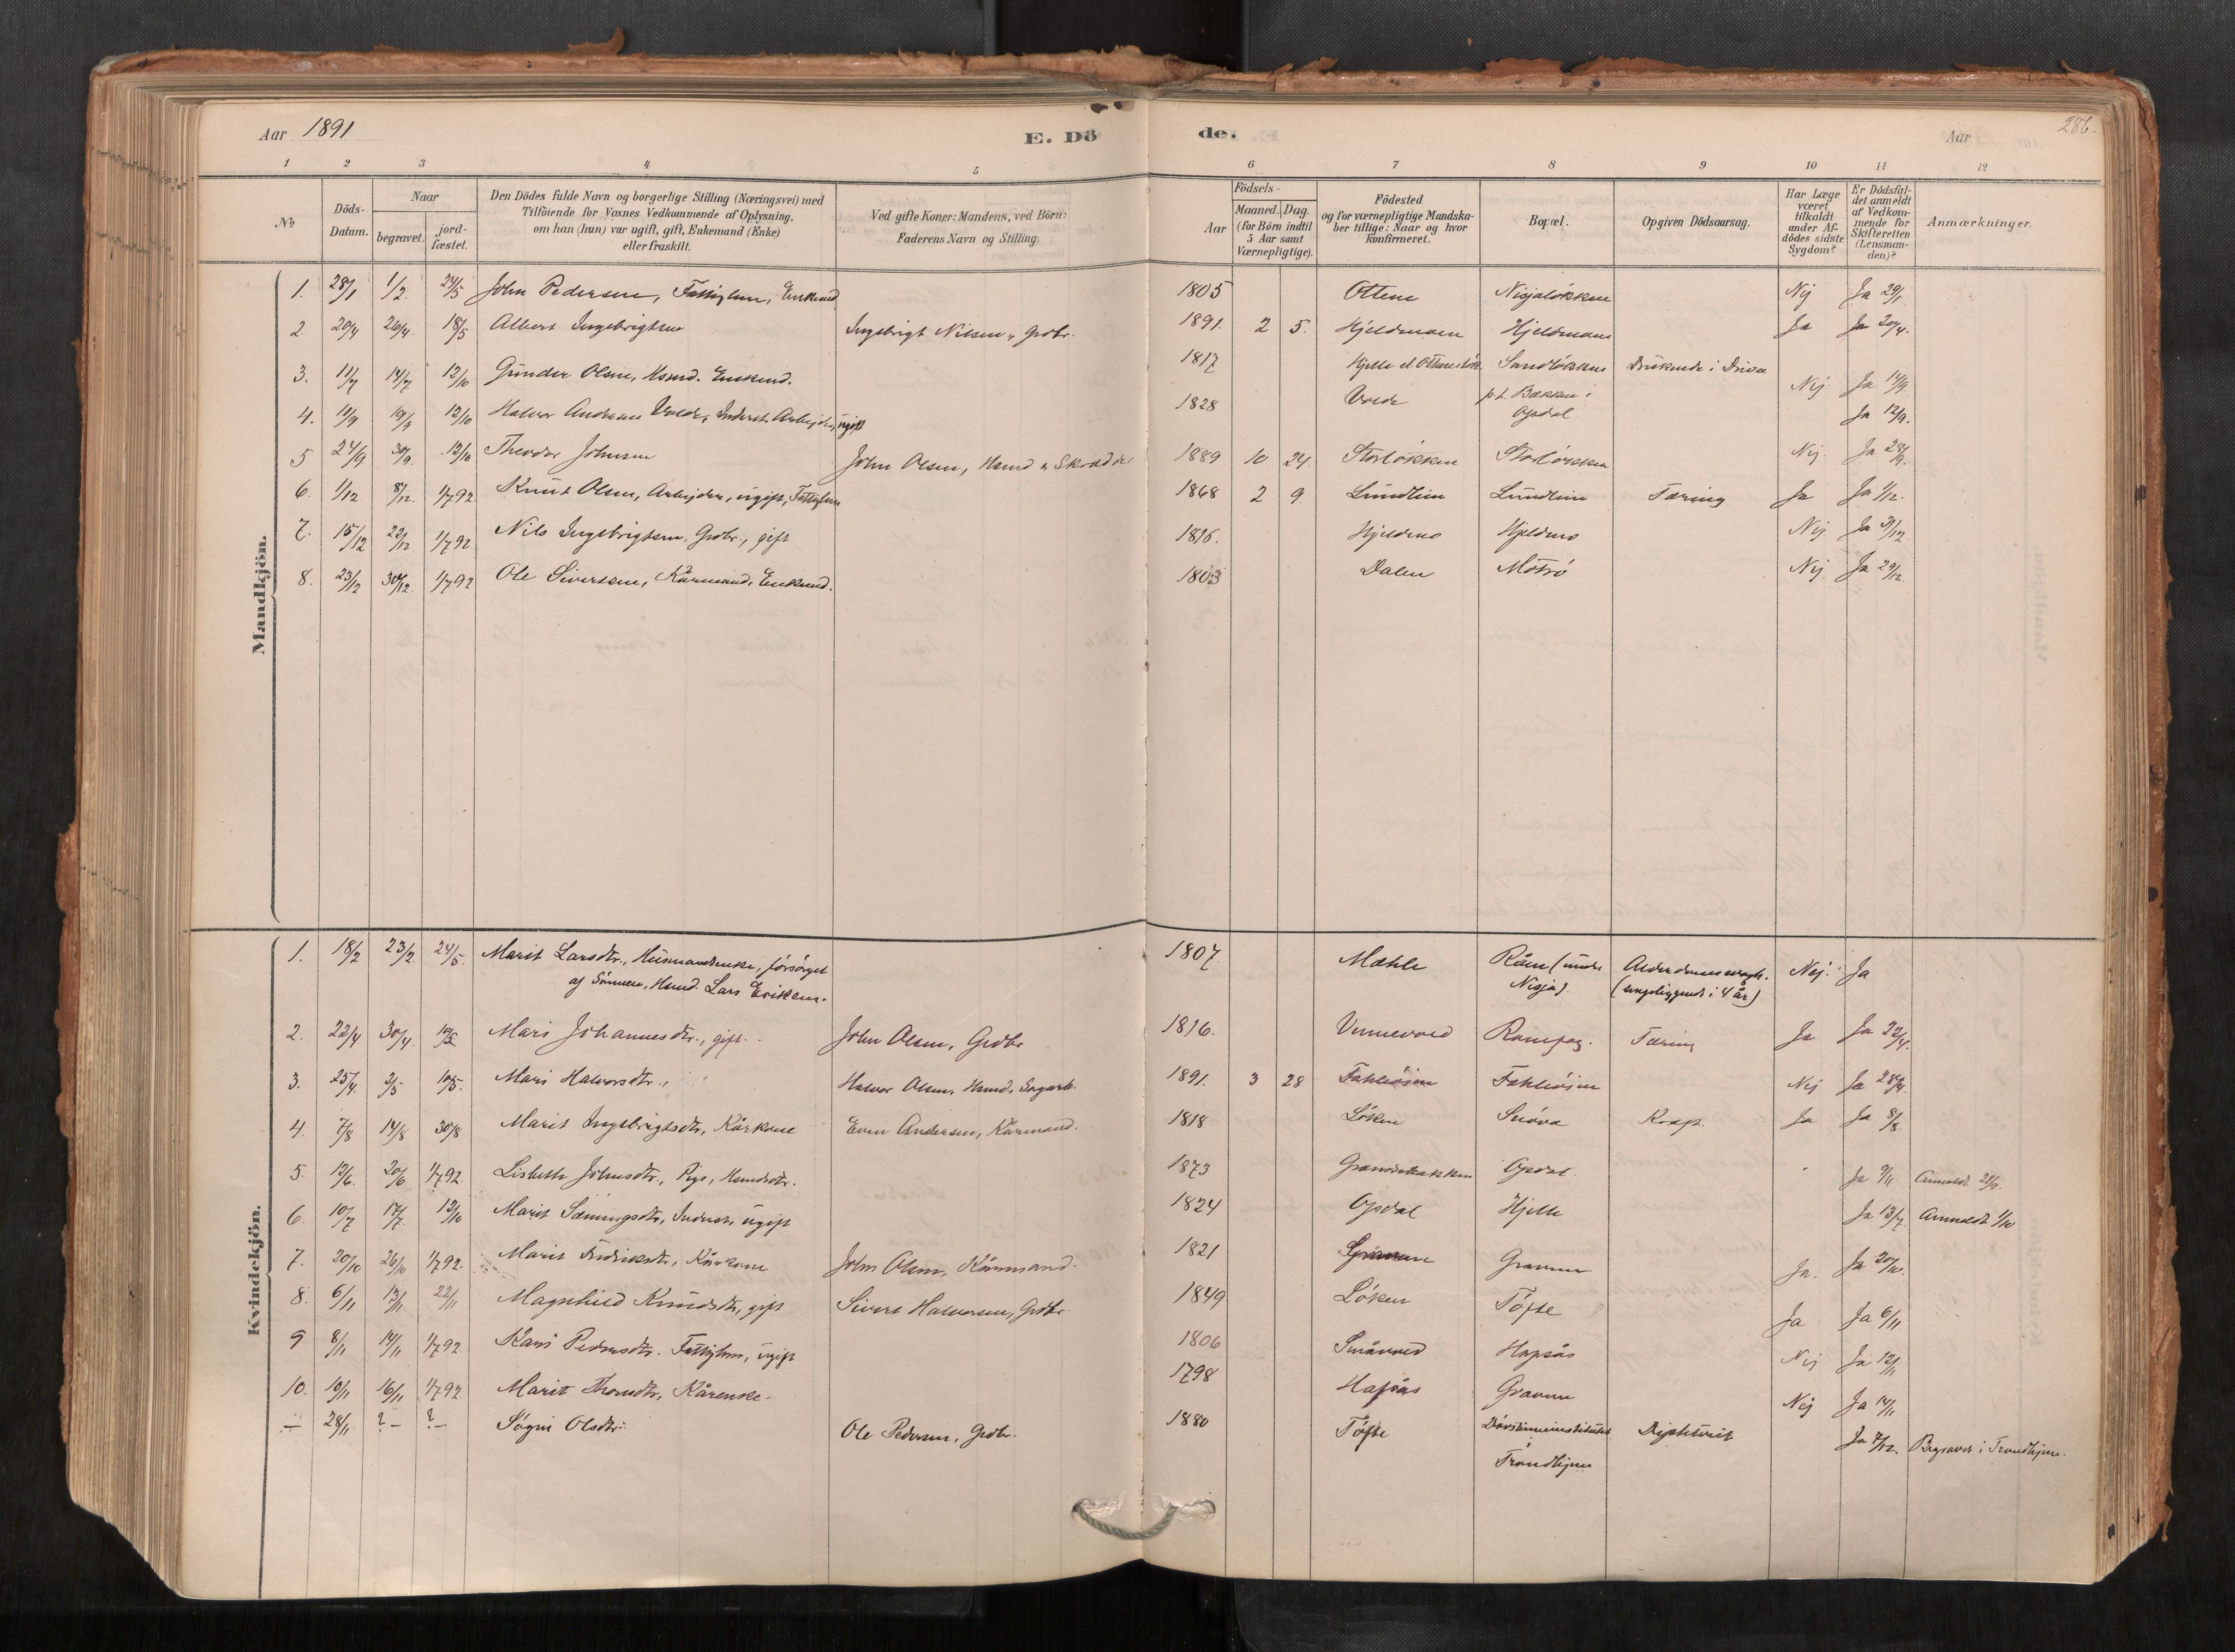 Aar 1891
E. Dö
de.
Aar
286.
1 2 3 4 5 6 7 8 9 10 11 12
No.
Döds-Datum.
Naar
begravet.
jord-fæstet.
Den Dödes fulde Navn og borgerlige Stilling (Næringsvei) med
Tilföiende for Voxnes Vedkommende af Oplysning,
om han (hun) var ugift, gift, Enkemand (Enke)
eller fraskilt.
Ved gifte Koner: Mandens, ved Börn:
Faderens Navn og Stilling.
Födsels-
Aar
Maaned. Dag.
(for Börn indtil
5 Aar samt
Værnepligtige).
Födested
og for værnepligtige Mandska-
ber tillige: Naar og hvor
konfirmeret.
Bopæl.
Opgiven Dödsaarsag.
Har Læge
været
tilkaldt
under Af-
dödes sidste
Sygdom?
Er Dödsfal-
det anmeldt
af Vedkom-
mende for
Skifteretten
(Lensman-
den)?
Anmærkninger.
Mandkjön.
1. 28/1 1/2. 24/5 John Pedersen, Fattiglem, Enkemd 1805 Ottem Nisjaløkken Nej Ja 29/1
2. 20/4 26/4. 18/5 Albert Ingebrigtsen Ingebrigt Nilsen, Grdbr. 1891. 2 5. Hjeldmoen Hjeldmoen Ja Ja 20/4.
3. 11/7 14/7 12/10 Gunder Olsen, Husmd. Enkemd. 1817 Hjelle el. Sandløkken Druknede i Driva Nej Ja 14/9
4. 11/9 19/9 12/10 Halvor Andersen Volde, Inderst. Arbejder, ugift 1828 Volde p.t. Bækken i Ja 12/9.
Opdal
5 24/9 30/9. 12/10 Theodor Johnsen John Olsen, Husmd & Skrædder 1889 10 24. Storløkken Storløkken Nej. Ja 28/9.
6. 1/12 8/12. 1/7 92 Knut Olsen, Arbejder, ugift, Fattiglem 1868 2 9. Lundlien Lundlien Tæring Ja Ja 1/12.
7. 15/12 22/12 1/7 92 Nils Ingebrigtsen, Grdbr., gift 1816. Hjeldmo Hjeldmo Nej Ja 31/12
8. 23/12 30/12. 1/7 92 Ole Sivertsen, Kårmand, Enkemd. 1803 Dalen Mötrö Nej. Ja 29/12.
Kvindekjön.
1. 18/2 23/2 24/5. Marit Larsdtr., Husmandsenke, forsörget 1807. Mæhle Råen (under Alderdomssvagh. Nej. Ja
af Sönnen, Husmd. Lars Eriksen. Nisja). (sengeliggende i 4 år)
2. 22/4 30/4. 10/5 Mari Johannesdtr., gift. John Olsen, Grdbr 1816. Vinnevold Tæring Ja Ja 22/4.
3. 25/4. 2/5 10/5. Mari Halvorsdtr., Halvor Olsen, Husmd. 1891. 3 28 Nej Ja 28/4.
4. 7/8 14/8 30/8 Marit Ingebrigtsdtr., Kårkone Even Andersen, Kårmand. 1818 Löken Snöva Kræft. Ja Ja 8/8.
5. 12/6. 20/6 1/7 92. Lisbeth Johnsdtr., Pige, Husmdsdtr. 1873 Opdal. Ja 9/11 Anmeldt
6. 10/7 17/7. 12/10 Marit Sæmingsdtr., Inderst. ugift 1824 Opdal Hjelle Ja 13/7. Anmeldt 1/10
7. 20/10 26/10 1/7 92. Marit Fredriksdtr., Kårkone John Olsen, Kårmand. 1821 Gravem Ja. Ja 20/10.
8. 6/11 13/11 22/11 Magnhild Knudsdtr., gift Sivert Halvorsen, Grdbr. 1849 Löken Töfte Ja Ja 6/11
9 8/11 14/11 1/7 92 Kari Pedersdtr. Fattiglem, ugift 1806 Småvold Hapsås Nej Ja 12/11
10. 10/11 16/11 1/7 92 Marit Thorsdtr., Kårenke. 1798 Hapsås Gravem Nej Ja 14/11
— 28/11 ? – ? – Sögni Olsdtr. Ole Pedersen, Grdbr. 1880 Töfte Døvstummeinstitutet Diphterit Ja 7/12. Begravet i Trondhjem.
Trondhjem